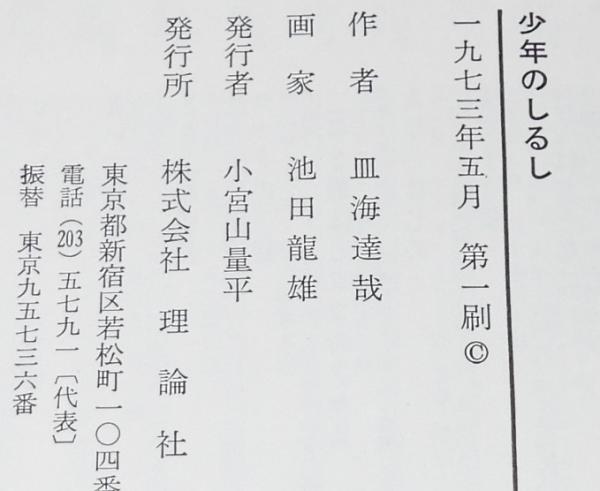 少年のしるし
一九七三年五月　第一刷©
作者　皿海達哉
画家　池田龍雄
発行者　小宮山量平
発行所　株式会社 理論社
東京都新宿区若松町一〇四番
電話(203)五七九一〔代表〕
振替　東京九五七三六番